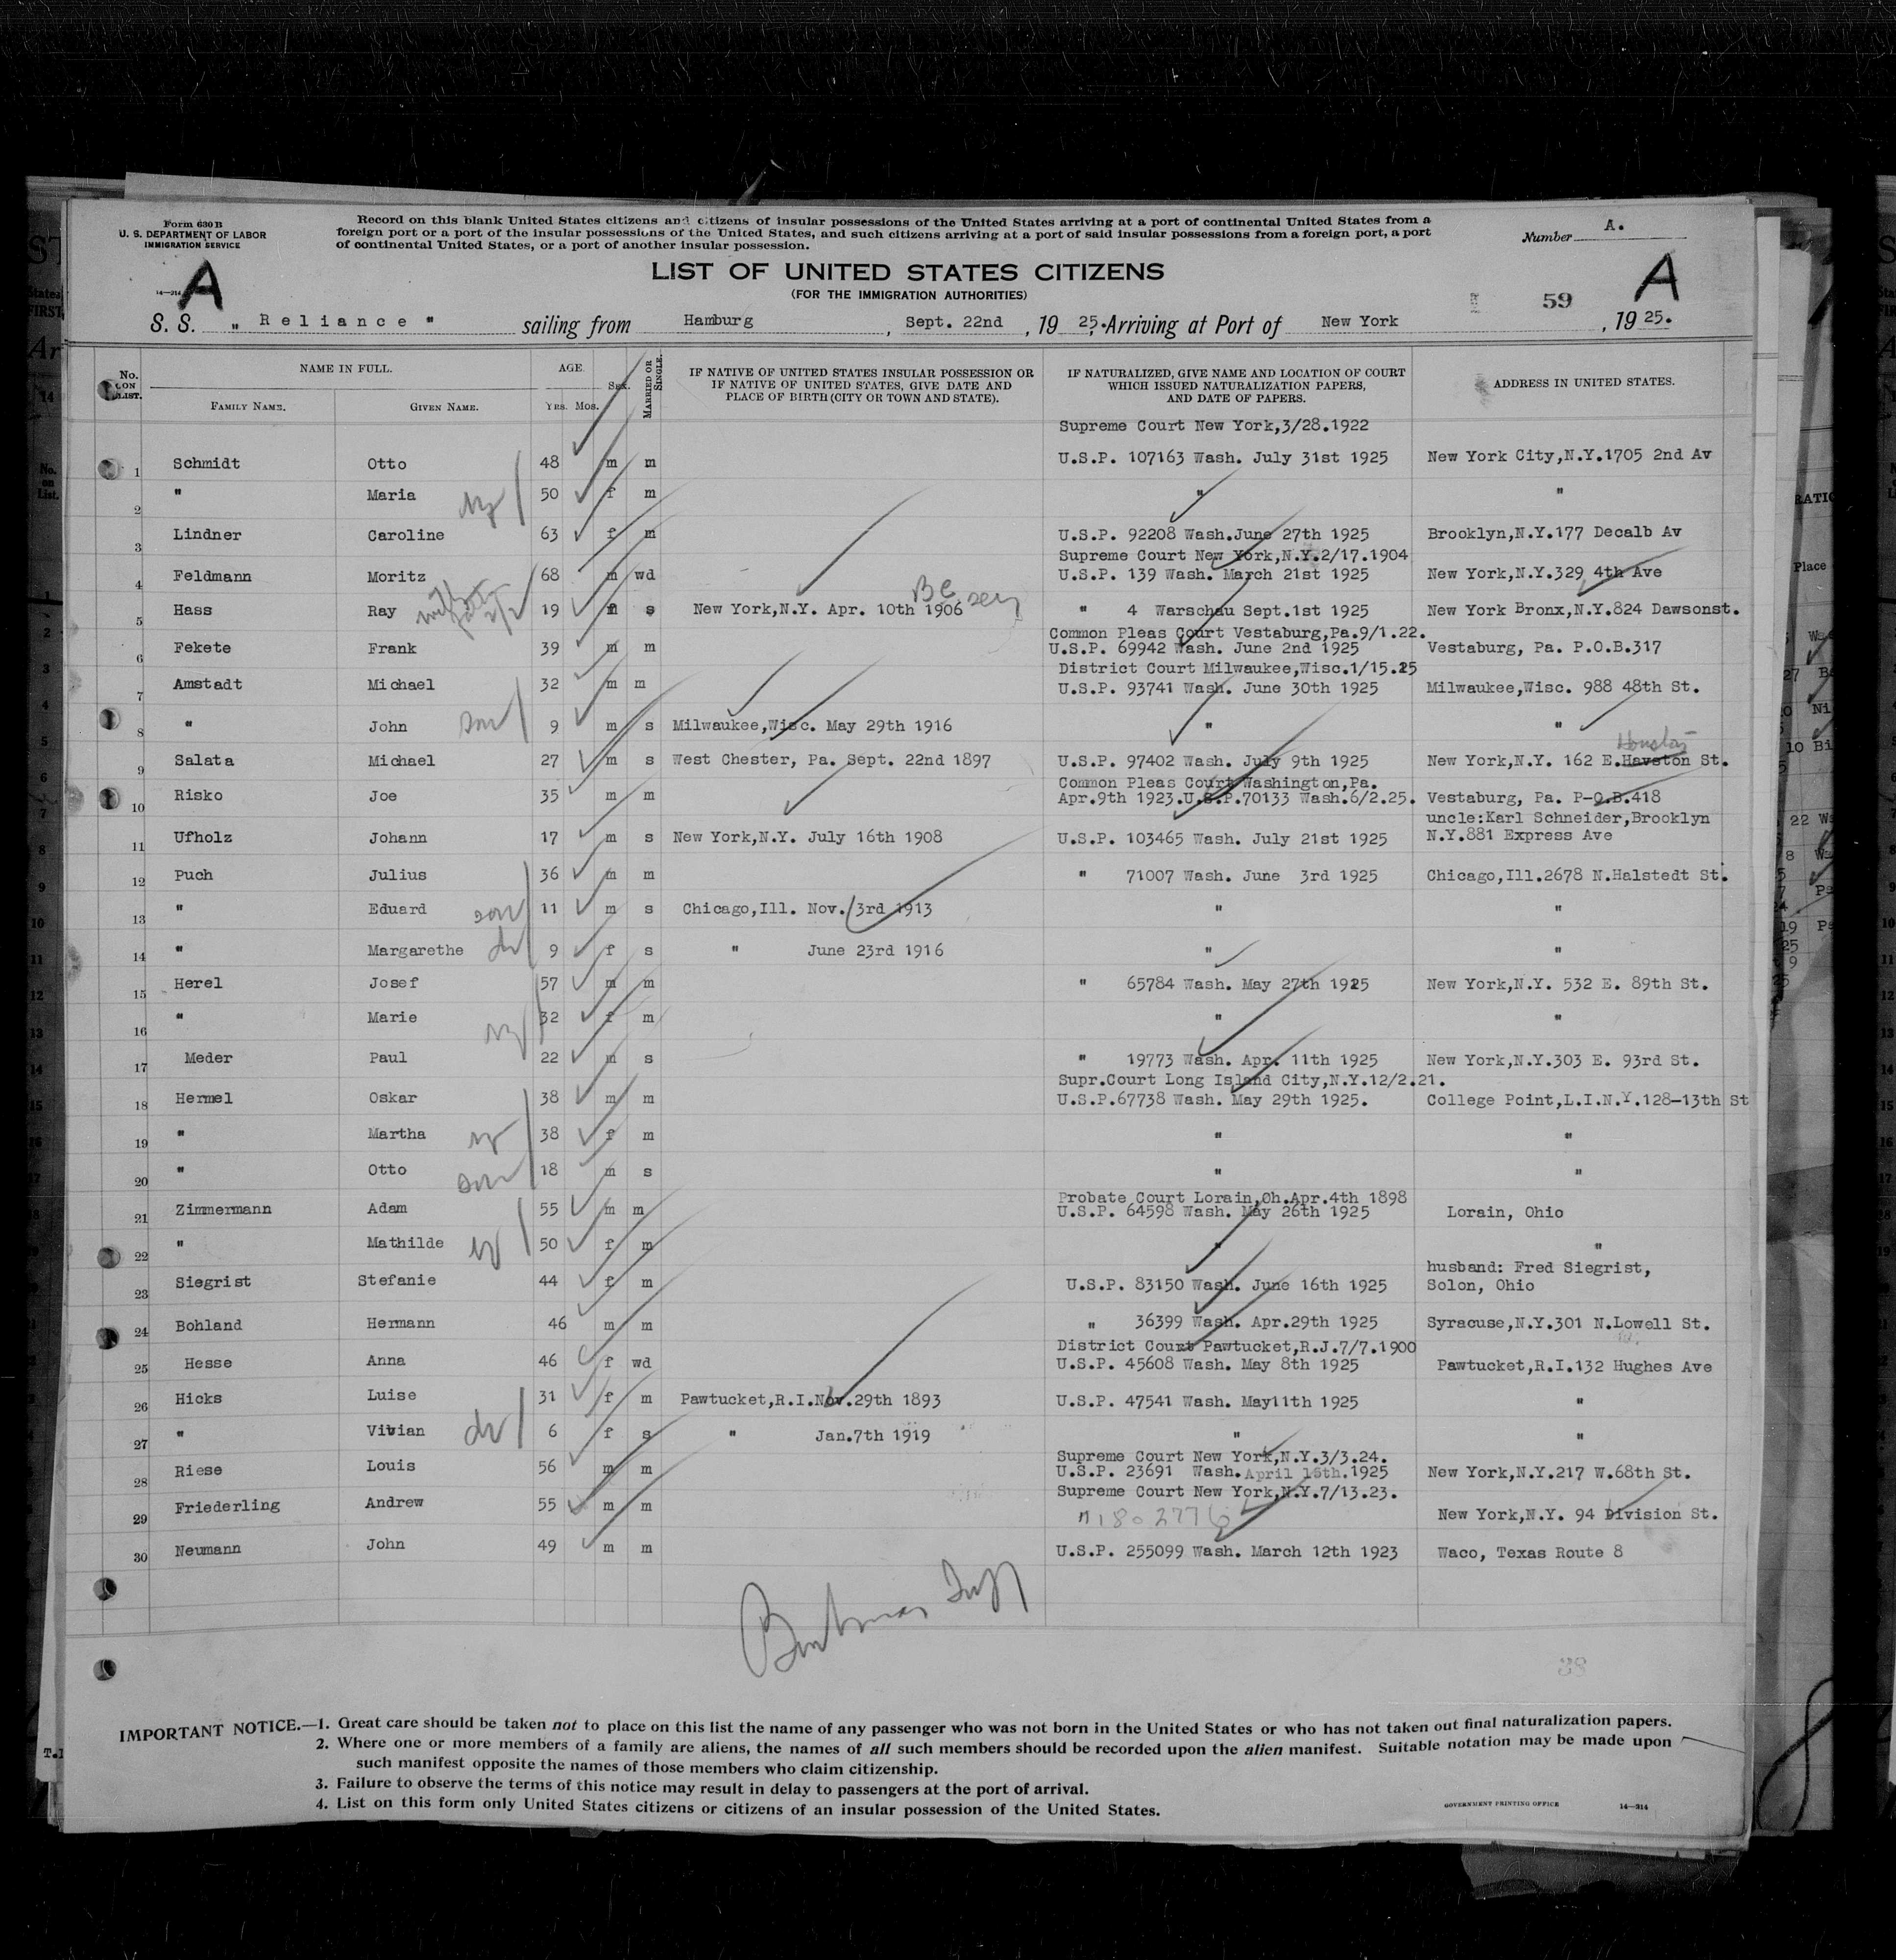 Form 630 B
U. S. DEPARTMENT OF LABOR
IMMIGRATION SERVICE
Record on this blank United States citizens and citizens of insular possessions of the United States arriving at a port of continental United States from a
foreign port or a port of the insular possessions of the United States, and such citizens arriving at a port of said insular possessions from a foreign port, a port
of continental United States, or a port of another insular possession.
Number A.
LIST OF UNITED STATES CITIZENS
(FOR THE IMMIGRATION AUTHORITIES)
14—314 A
59 A
S. S. " Reliance " sailing from Hamburg, Sept. 22nd, 1925, Arriving at Port of New York, 1925.
No. ON LIST. NAME IN FULL. FAMILY NAME. GIVEN NAME. AGE. YRS. MOS. Sex. MARRIED OR SINGLE. IF NATIVE OF UNITED STATES INSULAR POSSESSION OR IF NATIVE OF UNITED STATES, GIVE DATE AND PLACE OF BIRTH (CITY OR TOWN AND STATE). IF NATURALIZED, GIVE NAME AND LOCATION OF COURT WHICH ISSUED NATURALIZATION PAPERS, AND DATE OF PAPERS. ADDRESS IN UNITED STATES.
Supreme Court New York,3/28.1922
1 Schmidt Otto 48 m m U.S.P. 107163 Wash. July 31st 1925 New York City,N.Y.1705 2nd Av
2 " Maria 50 f m " "
3 Lindner Caroline 63 f m U.S.P. 92208 Wash.June 27th 1925 Brooklyn,N.Y.177 Decalb Av
Supreme Court New York,N.Y.2/17.1904
4 Feldmann Moritz 68 m wd U.S.P. 139 Wash. March 21st 1925 New York,N.Y.329 4th Ave
5 Hass Ray 19 s New York,N.Y. Apr. 10th 1906 " 4 Warschau Sept.1st 1925 New York Bronx,N.Y.824 Dawsonst.
Common Pleas Court Vestaburg,Pa.9/1.22.
6 Fekete Frank 39 m m U.S.P. 69942 Wash. June 2nd 1925 Vestaburg, Pa. P.O.B.317
District Court Milwaukee,Wisc.1/15.25
7 Amstadt Michael 32 m m U.S.P. 93741 Wash. June 30th 1925 Milwaukee,Wisc. 988 48th St.
8 " John son 9 m s Milwaukee,Wisc. May 29th 1916 " "
Houston
9 Salata Michael 27 m s West Chester, Pa. Sept. 22nd 1897 U.S.P. 97402 Wash. July 9th 1925 New York,N.Y. 162 E.Havston St.
Common Pleas Court Washington,Pa.
10 Risko Joe 35 m m Apr.9th 1923.U.S.P.70133 Wash.6/2.25. Vestaburg, Pa. P-O.B.418
uncle:Karl Schneider,Brooklyn
11 Ufholz Johann 17 m s New York,N.Y. July 16th 1908 U.S.P. 103465 Wash. July 21st 1925 N.Y.881 Express Ave
12 Puch Julius 36 m m " 71007 Wash. June 3rd 1925 Chicago,Ill.2678 N.Halstedt St.
13 " Eduard son 11 m s Chicago,Ill. Nov. 3rd 1913 " "
14 " Margarethe 9 f s " June 23rd 1916 " "
15 Herel Josef 57 m m " 65784 Wash. May 27th 1925 New York,N.Y. 532 E. 89th St.
16 " Marie 32 f m " "
17 Meder Paul 22 m s " 19773 Wash. Apr. 11th 1925 New York,N.Y.303 E. 93rd St.
Supr.Court Long Island City,N.Y.12/2.21.
18 Hermel Oskar 38 m m U.S.P.67738 Wash. May 29th 1925. College Point,L.I.N.Y.128-13th St
19 " Martha 38 f m " "
20 " Otto son 18 m s " "
Probate Court Lorain,Oh.Apr.4th 1898
21 Zimmermann Adam 55 m m U.S.P. 64598 Wash. May 26th 1925 Lorain, Ohio
22 " Mathilde 50 f m " "
husband: Fred Siegrist,
23 Siegrist Stefanie 44 f m U.S.P. 83150 Wash. June 16th 1925 Solon, Ohio
24 Bohland Hermann 46 m m " 36399 Wash. Apr.29th 1925 Syracuse,N.Y.301 N.Lowell St.
District Court Pawtucket,R.J.7/7.1900
25 Hesse Anna 46 f wd U.S.P. 45608 Wash. May 8th 1925 Pawtucket,R.I.132 Hughes Ave
26 Hicks Luise 31 f m Pawtucket,R.I.Nov.29th 1893 U.S.P. 47541 Wash. May11th 1925 "
27 " Vivian 6 f s " Jan.7th 1919 " "
Supreme Court New York,N.Y.3/3.24.
28 Riese Louis 56 m m U.S.P. 23691 Wash.April 15th.1925 New York,N.Y.217 W.68th St.
Supreme Court New York,N.Y.7/13.23.
29 Friederling Andrew 55 m m New York,N.Y. 94 Division St.
30 Neumann John 49 m m U.S.P. 255099 Wash. March 12th 1923 Waco, Texas Route 8
38
IMPORTANT NOTICE.—1. Great care should be taken not to place on this list the name of any passenger who was not born in the United States or who has not taken out final naturalization papers.
2. Where one or more members of a family are aliens, the names of all such members should be recorded upon the alien manifest. Suitable notation may be made upon
such manifest opposite the names of those members who claim citizenship.
3. Failure to observe the terms of this notice may result in delay to passengers at the port of arrival.
4. List on this form only United States citizens or citizens of an insular possession of the United States.
GOVERNMENT PRINTING OFFICE 14—314